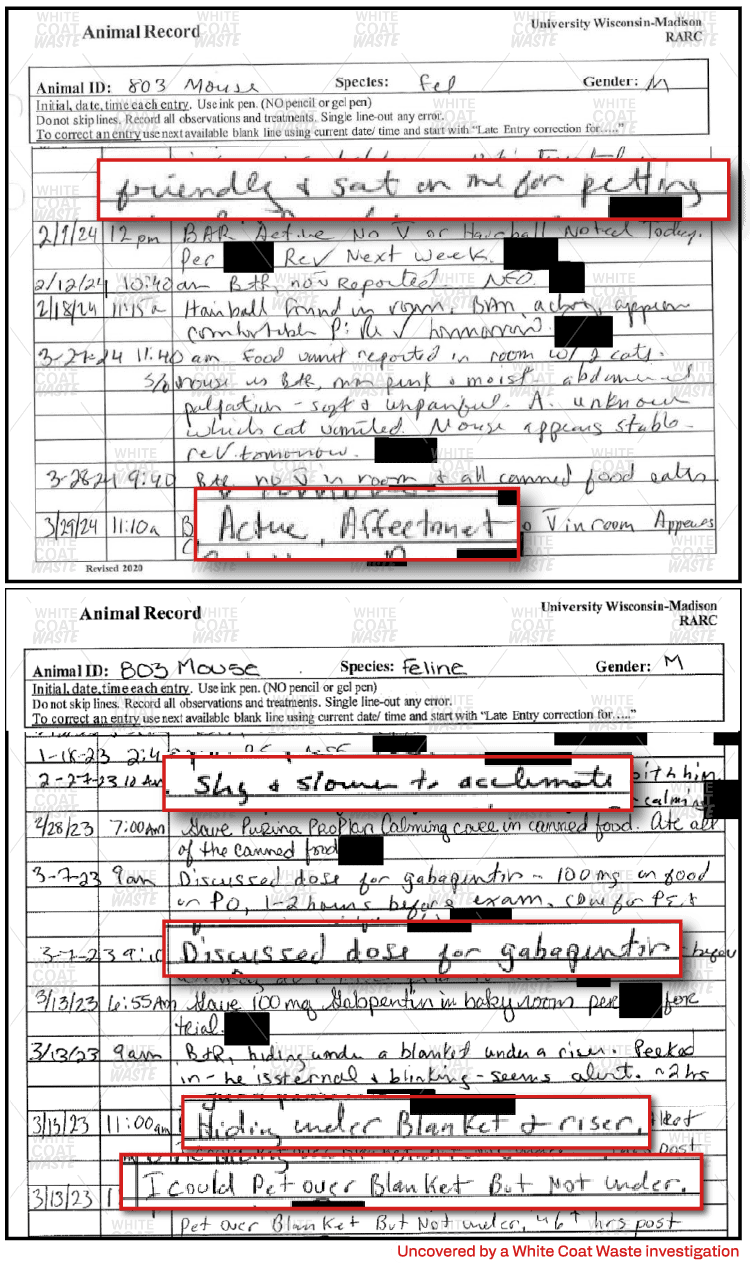 Animal Record
University Wisconsin-Madison
RARC
Animal ID: 803 Mouse Species: Fel Gender: M
Initial, date, time each entry. Use ink pen. (NO pencil or gel pen)
Do not skip lines. Record all observations and treatments. Single line-out any error.
To correct an entry use next available blank line using current date/ time and start with “Late Entry correction for.....”
friendly & sat on me for petting
2/9/24 12 pm BAR Active No V or Hairball Noted Today.
Per Rev Next Week.
2/12/24 10:40am BAR, no V Reported. NEO.
2/18/24 11:15a Hairball found in room. BAR, active, appears
comfortable P: Rev tomorrow.
3-27-24 11:40 am Food vomit reported in room w/ 2 cats.
S/O mouse is BAR, mm pink & moist, abdominal
palpation - soft & unpainful. A. unknown
which cat vomited. Mouse appears stable -
rev. tomorrow.
3-28-24 9:40 BAR no V in room & all canned food eaten
Active, Affectionet
3/29/24 11:10a B o V in room Appears
Revised 2020
Animal Record
University Wisconsin-Madison
RARC
Animal ID: 803 Mouse Species: Feline Gender: M
Initial, date, time each entry. Use ink pen. (NO pencil or gel pen)
Do not skip lines. Record all observations and treatments. Single line-out any error.
To correct an entry use next available blank line using current date/ time and start with “Late Entry correction for.....”
1-18-23 2:4
2-27-23 10 Am with him
Shy & slower to acclimate
calming
2/28/23 7:00Am Gave Purina ProPlan Calming care in canned food. Ate all
of the canned food
3-7-23 9am Discussed dose for gabapentin - 100 mg on food
or PO, 1-2 hours before exam.
3-7-23 9:10
Discussed dose for gabapentin
3/13/23 6:55Am Gave 100mg Gabpentin in baby room per for
trial.
3/13/23 9am BAR, hiding under a blanket under a riser. Peeked
in - he is sternal & blinking - seems alert. ~2 hrs
3/13/23 11:00am
Hiding under Blanket & riser.
post
I could Pet over Blanket But Not under.
3/13/23 1
Pet over Blanket But Not under, ~6+ hrs post
Uncovered by a White Coat Waste investigation
WHITE COAT WASTE